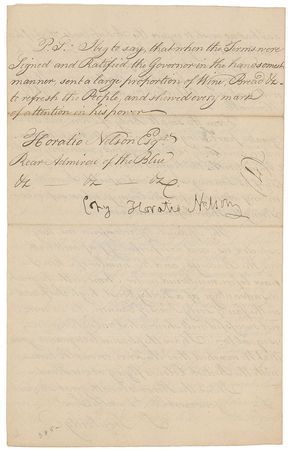 P.S. I beg to say, that when the Terms were
Signed and Ratified, the Governor in the handsomest
manner, sent a large proportion of Wine, Bread &c.
to refresh the People, and shewed every mark
of attention in his power
Horatio Nelson Esqr.
Rear Admiral of the Blue
&c — &c — &c
Copy Horatio Nelson